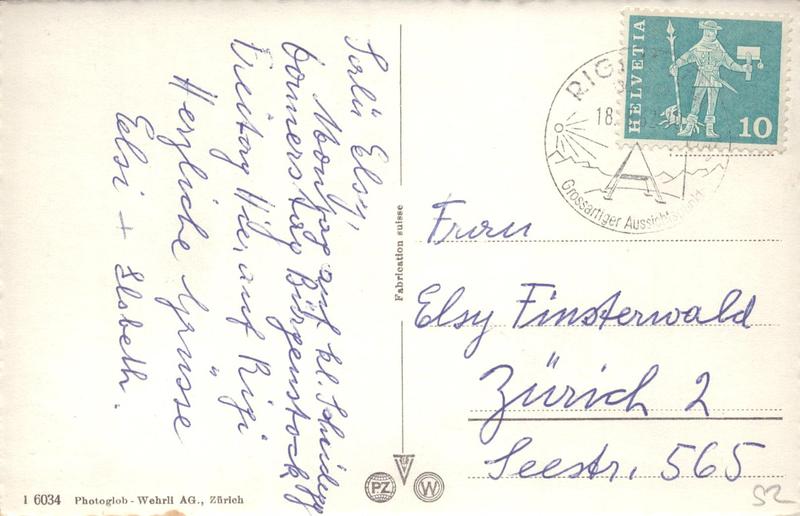 Salü Elsy,
Montag auf kl. Scheidegg
Donnerstag Bürgenstock &
Freitag Hier, auf Rigi
Herzliche Grüsse
Elsi + Elsbeth.
Fabrication suisse
HELVETIA
10
RIGI
18.
Grossartiger Aussichtspunkt
Frau
Elsy Finsterwald
Zürich 2
Seestr. 565
1 6034 Photoglob - Wehrli AG., Zürich
PZ
W
52